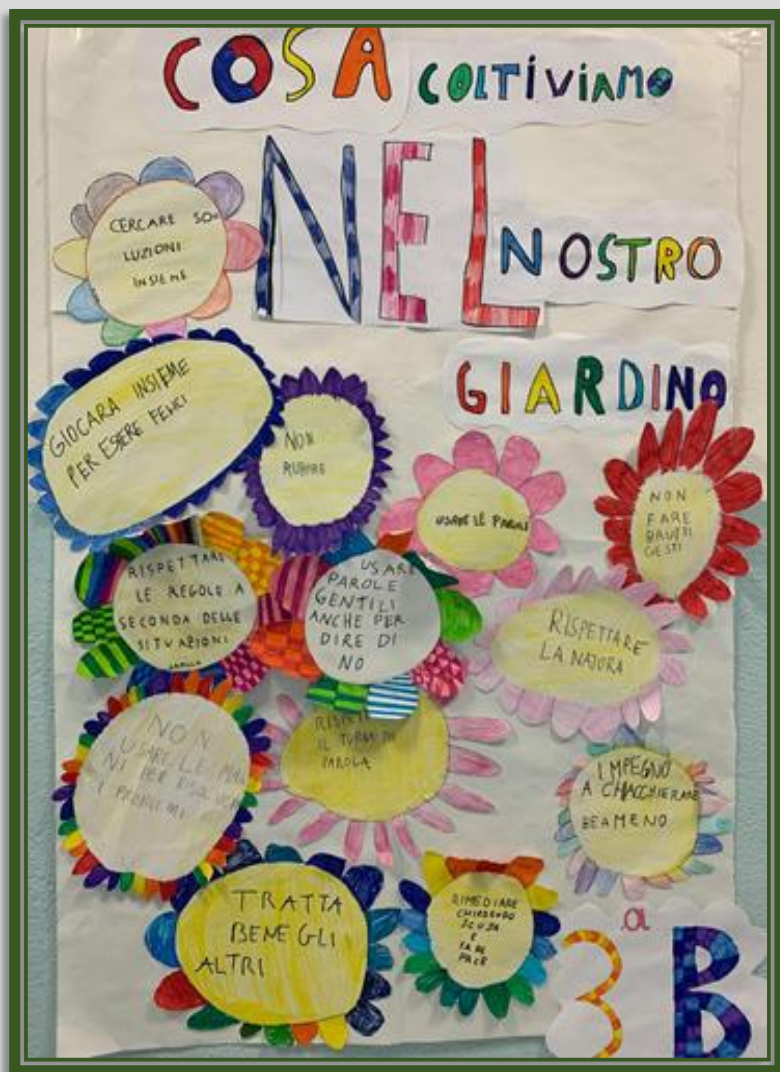 COSA COLTIVIAMO
NEL NOSTRO
GIARDINO
CERCARE SO-
LUZIONI
INSIEME
GIOCARA INSIEME
PER ESSERE FELICI
NON
RUBARE
USARE LE PAROLE
NON
FARE
BRUTTI
GESTI
RISPETTARE
LE REGOLE A
SECONDA DELLE
SITUAZIONI
USARE
PAROLE
GENTILI
ANCHE PER
DIRE DI
NO
RISPETTARE
LA NATURA
NON
USARE LE MA
NI PER RISOLVERE
I PROBLEMI
IL TURNO DI
PAROLA
IMPEGNO
A CHIACCHIERARE
BEAMENO
TRATTA
BENE GLI
ALTRI
RIMEDIARE
CHIEDENDO
SCUSA
E
FARE
PACE
3a B